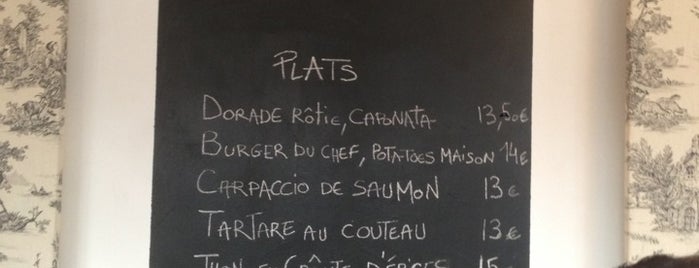 PLATS
DORADE RÔTIE, CAPONATA 13,50€
BURGER DU CHEF, POTATOES MAISON 14€
CARPACCIO DE SAUMON 13€
TARTARE AU COUTEAU 13€
THON EN CROÛTE D'ÉPICES 15